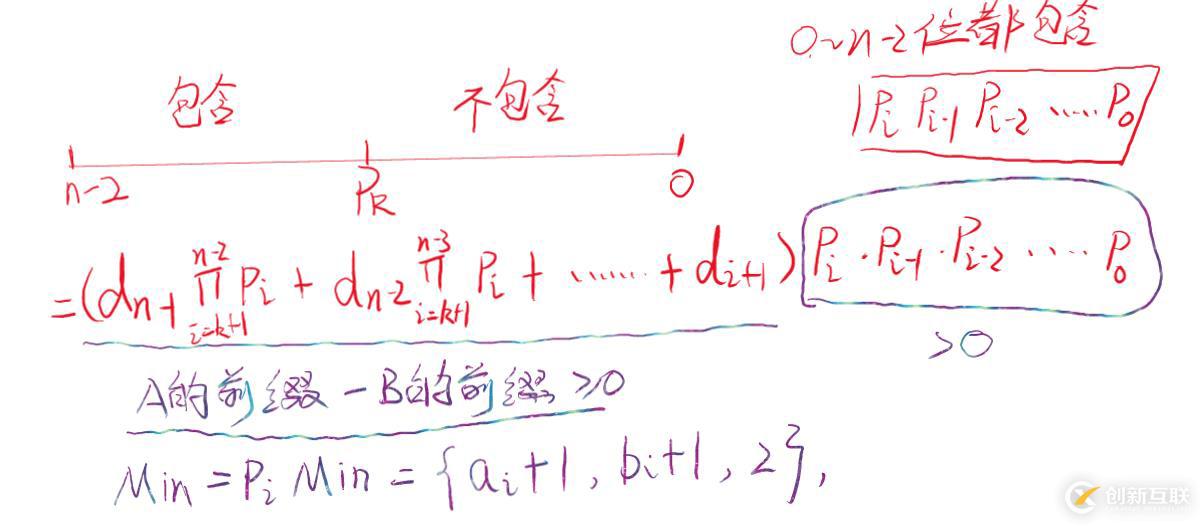 0~n-2位都包含
包含 不包含
| P_i P_{i-1} P_{i-2} ..... P_0
n-2 P_k 0
=(d_{n-1} ∏_{i=k+1}^{n-2} P_i + d_{n-2} ∏_{i=k+1}^{n-3} P_i + ...... + d_{i+1}) P_i · P_{i-1} · P_{i-2} ..... P_0
>0
A的前缀-B的前缀≥0
Min = P_i Min = {a_i+1, b_i+1, 2},
创新互联